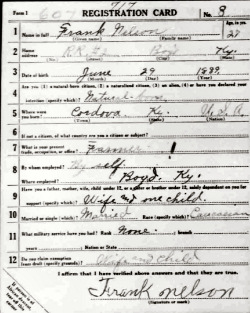 Form 1 REGISTRATION CARD No. 8
1 Name in full Frank Nelson Age, in yrs. 27
(Given name) (Family name)
2 Home address R.R. Boyd Ky.
(No.) (Street) (City) (State)
3 Date of birth June 29 1889
(Month) (Day) (Year)
4 Are you (1) a natural-born citizen, (2) a naturalized citizen, (3) an alien, (4) or have you declared your
intention (specify which)? Natural-born
5 Where were you born? Cordova Ky. U.S.A.
(Town) (State) (Nation)
6 If not a citizen, of what country are you a citizen or subject?
7 What is your present trade, occupation, or office? Farmer
8 By whom employed? My self
Where employed? Boyd. Ky.
9 Have you a father, mother, wife, child under 12, or a sister or brother under 12, solely dependent on you for
support (specify which)? Wife and one child.
10 Married or single (which)? Married Race (specify which)? Caucasian
11 What military service have you had? Rank None ; branch
years Nation or State
12 Do you claim exemption from draft (specify grounds)? Wife and child
I affirm that I have verified above answers and that they are true.
Frank Nelson
(Signature or mark)